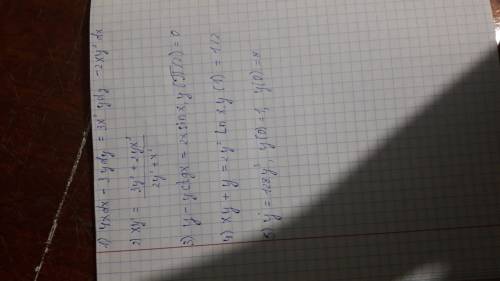 1) 4xdx - 3ydy = 3x²ydy - 2xy²dx
2) xy' = (3y³ + 2yx²) / (2y² + x²)
3) y' - y ctgx = 2x sinx, y(π/2) = 0
4) xy' + y = 2y² ln x, y(1) = 1/2
5) y'' = 128y³, y(0) = 1, y'(0) = 8